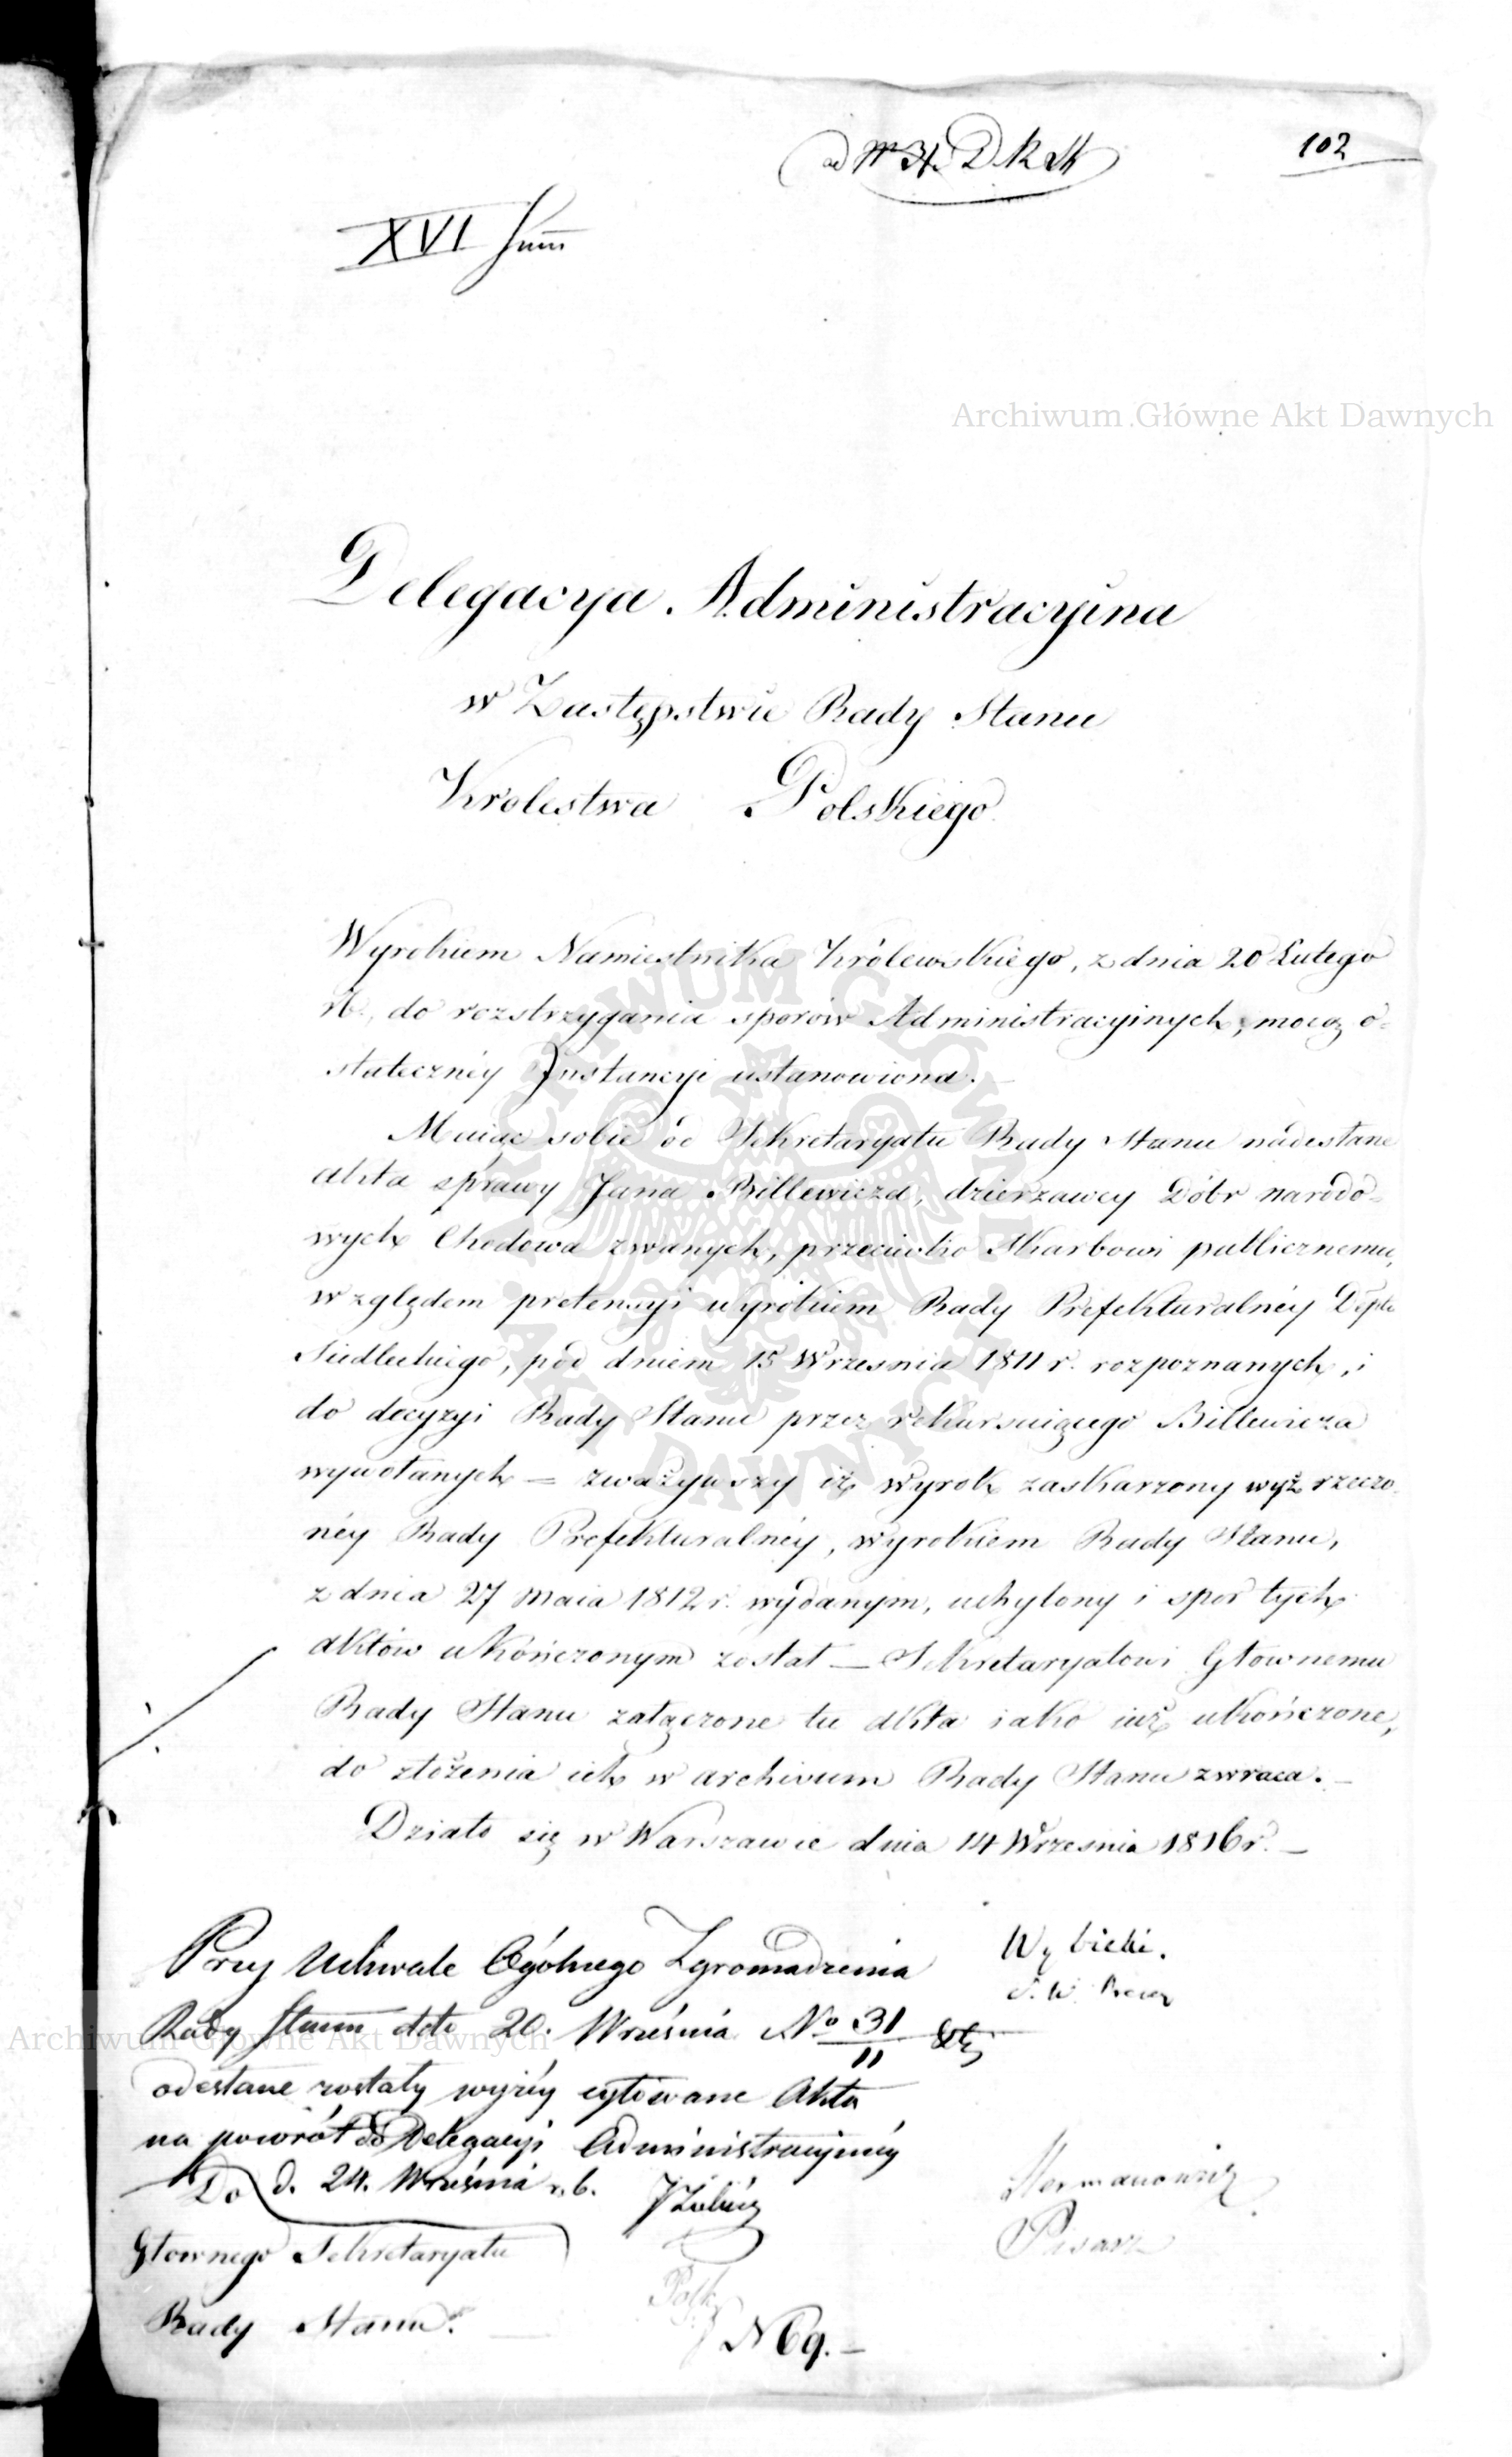 ad Nr 31. D.R.St.
102
XVI
Archiwum Główne Akt Dawnych
Delegacya Administracyina
w Zastępstwie Rady Stanu
Krolestwa Polskiego.
Wyrokiem Namiestnika Królewskiego, z dnia 20 Lutego
rb. do rozstrzygania sporów Administracyinych, mocą o-
stateczney Instancyi ustanowiona. —
Maiąc sobie od Sekretaryatu Rady Stanu nadesłane
akta sprawy Jana Billewicza, dzierzawcy Dóbr narodo-
wych Chodowa zwanych, przeciwko Skarbowi publicznemu,
względem pretensyi wyrokiem Rady Prefekturalnéy Depto
Siedleckiego, pod dniem 15 Wrzesnia 1811 r. rozpoznanych, i
do decyzyi Rady Stanu przez rekursuiącego Billewicza
wywołanych — zważywszy iż wyrok zaskarzony wyż rzeczo-
néy Rady Prefekturalnéy, wyrokiem Rady Stanu,
z dnia 27 Maia 1812 r. wydanym, uchylony i spor tych
aktów ukończonym został — Sekretaryatowi Głownemu
Rady Stanu załączone tu akta iako iuż ukończone,
do złożenia ich w archivum Rady Stanu zwraca. —
Działo się w Warszawie dnia 14 Wrzesnia 1816 r. —
Wybicki.
S. W. Prezes
Przy Uchwale Ogólnego Zgromadzenia
Rady Stanu dto 20. Września No 31/11
odesłane zostały wyżey cytowane Akta
na powrót do Delegacyi Administracyiney
d. 24. Września r. b.
Hermanowicz
Pisarz
Do
Głownego Sekretaryatu
Rady Stanu. —
N 69. —
Archiwum Główne Akt Dawnych
ARCHIWUM GŁÓWNE AKT DAWNYCH